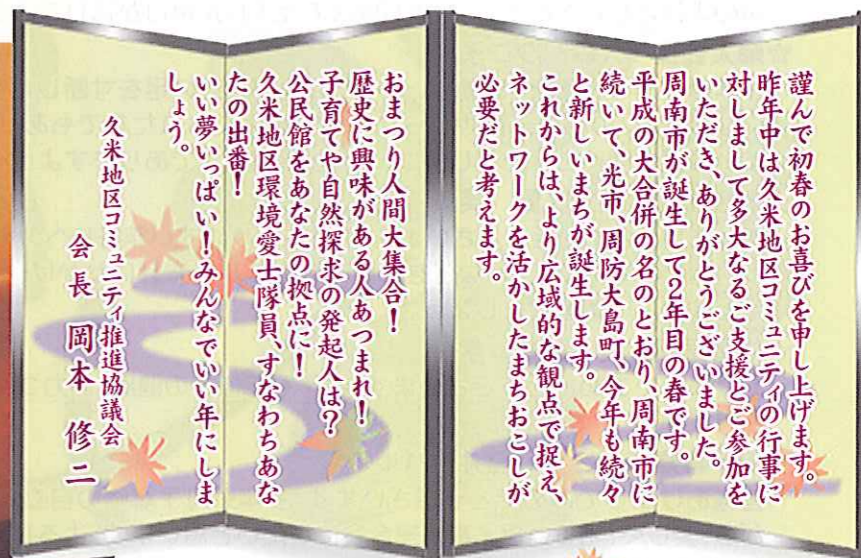 謹んで初春のお喜びを申し上げます。
昨年中は久米地区コミュニティの行事に
対しまして多大なるご支援とご参加を
いただき、ありがとうございました。
周南市が誕生して2年目の春です。
平成の大合併の名のとおり、周南市に
続いて、光市、周防大島町、今年も続々
と新しいまちが誕生します。
これからは、より広域的な観点で捉え、
ネットワークを活かしたまちおこしが
必要だと考えます。
おまつり人間大集合！
歴史に興味がある人あつまれ！
子育てや自然探求の発起人は？
公民館をあなたの拠点に！
久米地区環境愛士隊員、すなわちあな
たの出番！
いい夢いっぱい！みんなでいい年にしま
しょう。
久米地区コミュニティ推進協議会
会長 岡本 修二